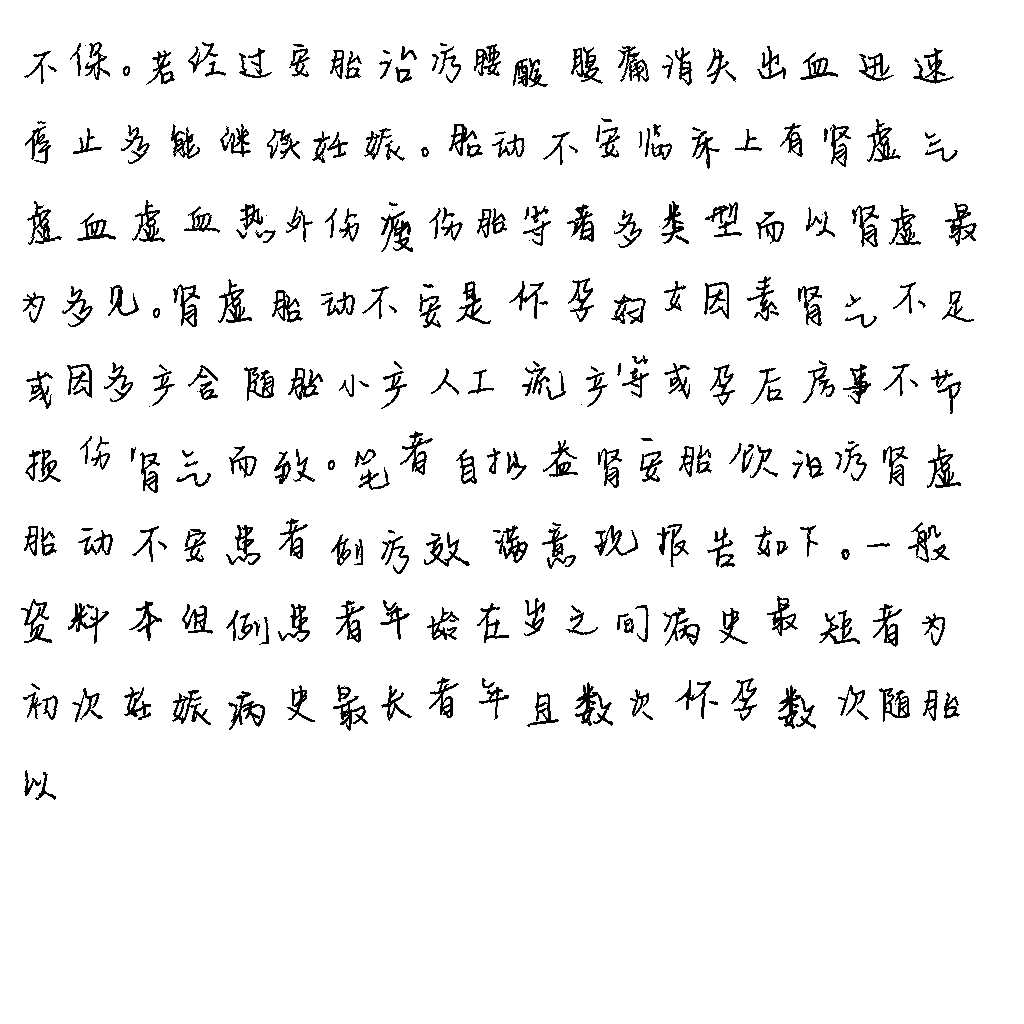 不保。若经过安胎治疗腰酸腹痛消失出血迅速
停止多能继续妊娠。胎动不安临床上有肾虚气
虚血虚血热外伤瘦伤胎等诸多类型而以肾虚最
为多见。肾虚胎动不安是怀孕妇女因素肾气不足
或因多产含随胎小产人工流产等或孕后房事不节
损伤肾气而致。笔者自拟益肾安胎饮治疗肾虚
胎动不安患者例疗效满意现报告如下。一般
资料本组例患者年龄在岁之间病史最短者为
初次妊娠病史最长者年且数次怀孕数次随胎
以